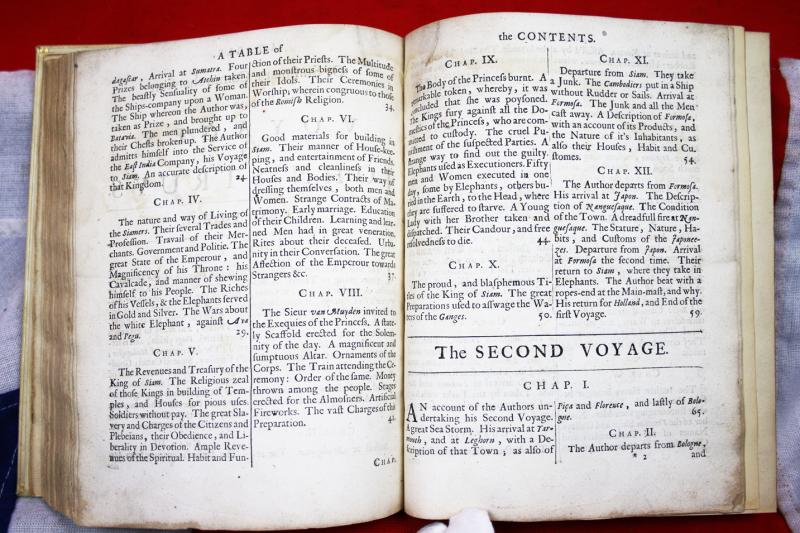 A TABLE of
dagascar, Arrival at Sumatra. Four
Prizes belonging to Atchin taken.
The beastly Sensuality of some of
the Ships-company upon a Woman.
The Ship wherein the Author was,
taken as Prize, and brought up to
Batavia. The men plundered, and
their Chests broken up. The Author
admits himself into the Service of
the East India Company, his Voyage
to Siam. An accurate description of
that Kingdom. 24.
CHAP. IV.
The nature and way of Living of
the Siamers. Their several Trades and
Profession. Travail of their Mer-
chants. Government and Politie. The
great State of the Emperour, and
Magnificency of his Throne: his
Cavalcade, and manner of shewing
himself to his People. The Riches
of his Vessels, & the Elephants served
in Gold and Silver. The Wars about
the white Elephant, against Ava
and Pegu. 29.
CHAP. V.
The Revenues and Treasury of the
King of Siam. The Religious zeal
of those Kings in building of Tem-
ples, and Houses for pious uses.
Soldiers without pay. The great Sla-
very and Charges of the Citizens and
Plebeians, their Obedience, and Li-
berality in Devotion. Ample Reve-
nues of the Spiritual. Habit and Fun-
ction of their Priests. The Multitude
and monstrous bigness of some of
their Idols. Their Ceremonies in
Worship; wherein congruous to those
of the Romish Religion. 34.
CHAP. VI.
Good materials for building in
Siam. Their manner of House-kee-
ping, and entertainment of Friends.
Neatness and cleanliness in their
Houses and Bodies. Their way of
dressing themselves, both men and
Women. Strange Contracts of Ma-
trimony. Early marriage. Education
of their Children. Learning and lear-
ned Men had in great veneration.
Rites about their deceased. Urba-
nity in their Conversation. The great
Affection of the Emperour towards
Strangers &c. 37.
CHAP. VIII.
The Sieur van Muyden invited to
the Exequies of the Princess. A sta-
tely Scaffold erected for the Solem-
nity of the day. A magnificent and
sumptuous Altar. Ornaments of the
Corps. The Train attending the Ce-
remony: Order of the same. Money
thrown among the people. Stages
erected for the Almosiers. Artificial
Fireworks. The vast Charges of this
Preparation.
CHAP.
the CONTENTS.
CHAP. IX.
The Body of the Princess burnt. A
remarkable token, whereby, it was
concluded that she was poysoned.
The Kings fury against all the Do-
mestics of the Princess, who are com-
mitted to custody. The cruel Pu-
nishment of the suspected Parties. A
strange way to find out the guilty.
Elephants used as Executioners. Fifty
men and Women executed in one
day, some by Elephants, others bu-
ried in the Earth, to the Head, where
they are suffered to starve. A Young
Lady with her Brother taken and
dispatched. Their Candour, and free
resolvedness to die. 44.
CHAP. X.
The proud, and blasphemous Ti-
tles of the King of Siam. The great
Preparations used to asswage the Wa-
ters of the Ganges. 50.
CHAP. XI.
Departure from Siam. They take
a Junk. The Cambodiers put in a Ship
without Rudder or Sails. Arrival at
Formosa. The Junk and all the Men
cast away. A Description of Formosa,
with an account of its Products, and
the Nature of it's Inhabitants, as
also their Houses, Habit and Cu-
stomes. 54.
CHAP. XII.
The Author departs from Formosa.
His arrival at Japon. The Descrip-
tion of Nanguesaque. The Condition
of the Town. A dreadfull fire at Nan-
guesaque. The Stature, Nature, Ha-
bits, and Customs of the Japonee-
zer. Departure from Japon. Arrival
at Formosa the second time. Their
return to Siam, where they take in
Elephants. The Author beat with a
ropes-end at the Main-mast, and why.
His return for Holland, and End of the
first Voyage. 59.
The SECOND VOYAGE.
CHAP. I.
AN account of the Authors un-
dertaking his Second Voyage.
A great Sea Storm. His arrival at Yar-
mouth, and at Leghorn, with a De-
scription of that Town; as also of
Pisa and Florence, and lastly of Bolo-
gne. 65.
CHAP. II.
The Author departs from Bologne,
* 2 and